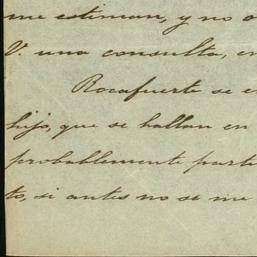 me estiman, y no o
V. una consulta, en
Rocafuerte se e
hijo, que se hallan en
probablemente parti
to, si antes no se me